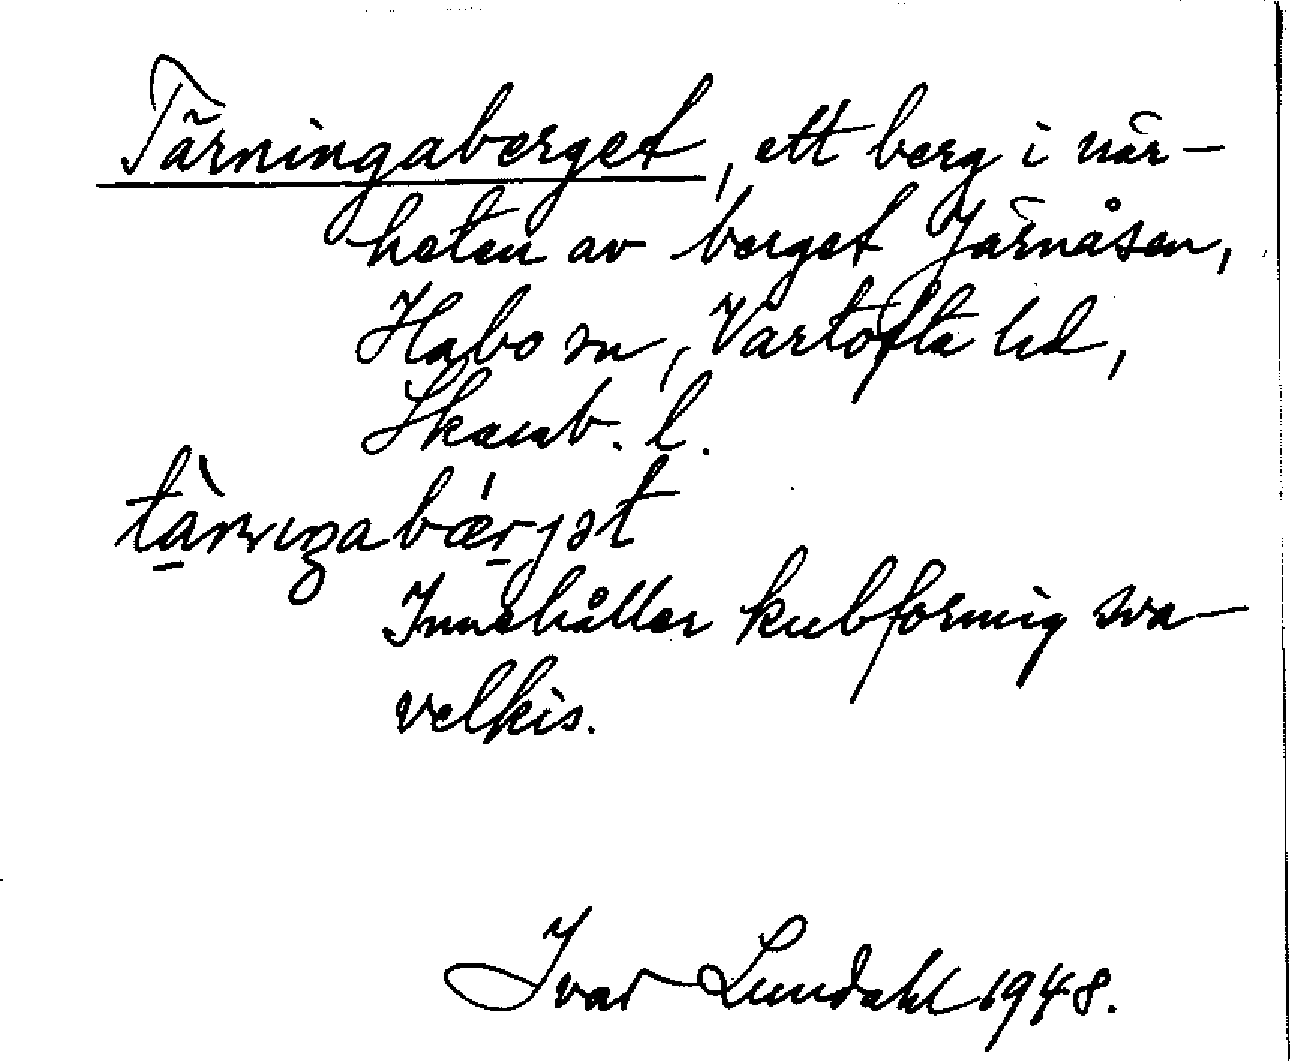 Tärningaberget, ett berg i när-
heten av berget Järnåsen,
Habo sn, Vartofta hd,
Skarab. l.
tä̀rnɩŋabǽrjət
Innehåller kubformig sva-
velkis.
Ivar Lundahl 1948.